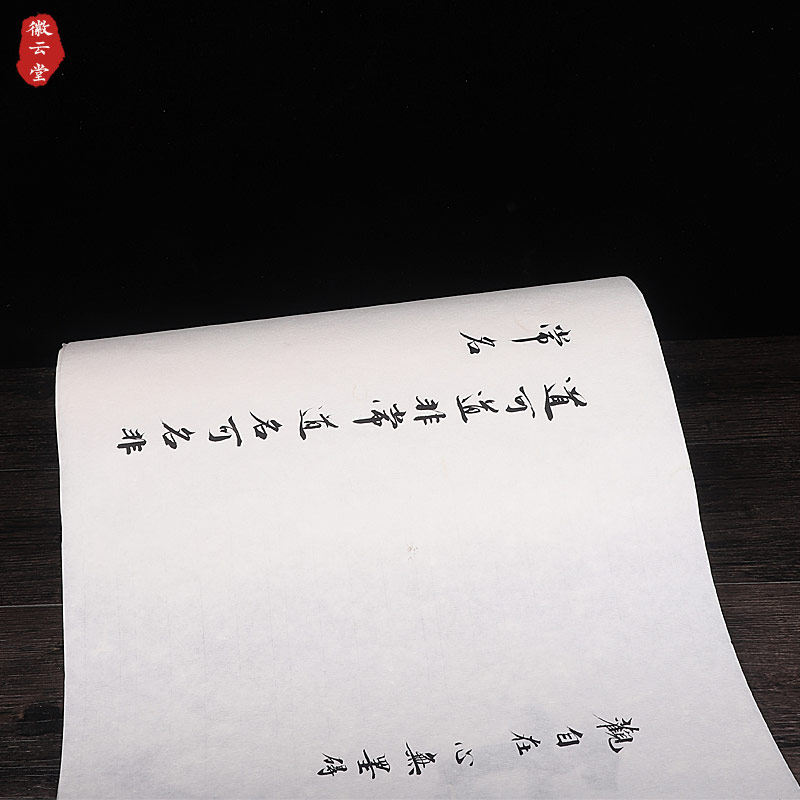 徽云堂
觀自在 心無罣
道可道非常道名可名非
常名